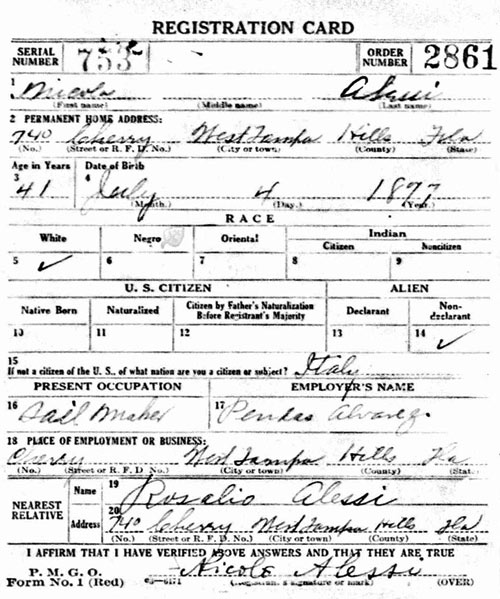 REGISTRATION CARD
SERIAL NUMBER 753 ORDER NUMBER 2861
1 Nicola Alessi
(First name) (Middle name) (Last name)
2 PERMANENT HOME ADDRESS:
740 Cherry West Tampa Hills Fla
(No.) (Street or R. F. D. No.) (City or town) (County) (State)
Age in Years Date of Birth
3 4
41 July 4 1877
(Month.) (Day.) (Year.)
RACE
White Negro Oriental Indian
Citizen Noncitizen
5 ✓ 6 7 8 9
U. S. CITIZEN ALIEN
Native Born Naturalized Citizen by Father's Naturalization Before Registrant's Majority Declarant Non-declarant
10 11 12 13 14 ✓
15
If not a citizen of the U. S., of what nation are you a citizen or subject? Italy
PRESENT OCCUPATION EMPLOYER'S NAME
16 17 Pendas Alvarez
18 PLACE OF EMPLOYMENT OR BUSINESS:
Cherry West Tampa Hills Fla
(No.) (Street or R. F. D. No.) (City or town) (County) (State)
NEAREST RELATIVE Name 19 Rosalio Alessi
Address 20 740 Cherry West Tampa Hills Fla
(No.) (Street or R. F. D. No.) (City or town) (County) (State)
I AFFIRM THAT I HAVE VERIFIED ABOVE ANSWERS AND THAT THEY ARE TRUE
P. M. G. O.
Form No. 1 (Red) 03-6171 Nicola Alessi
(Registrant's signature or mark) (OVER)